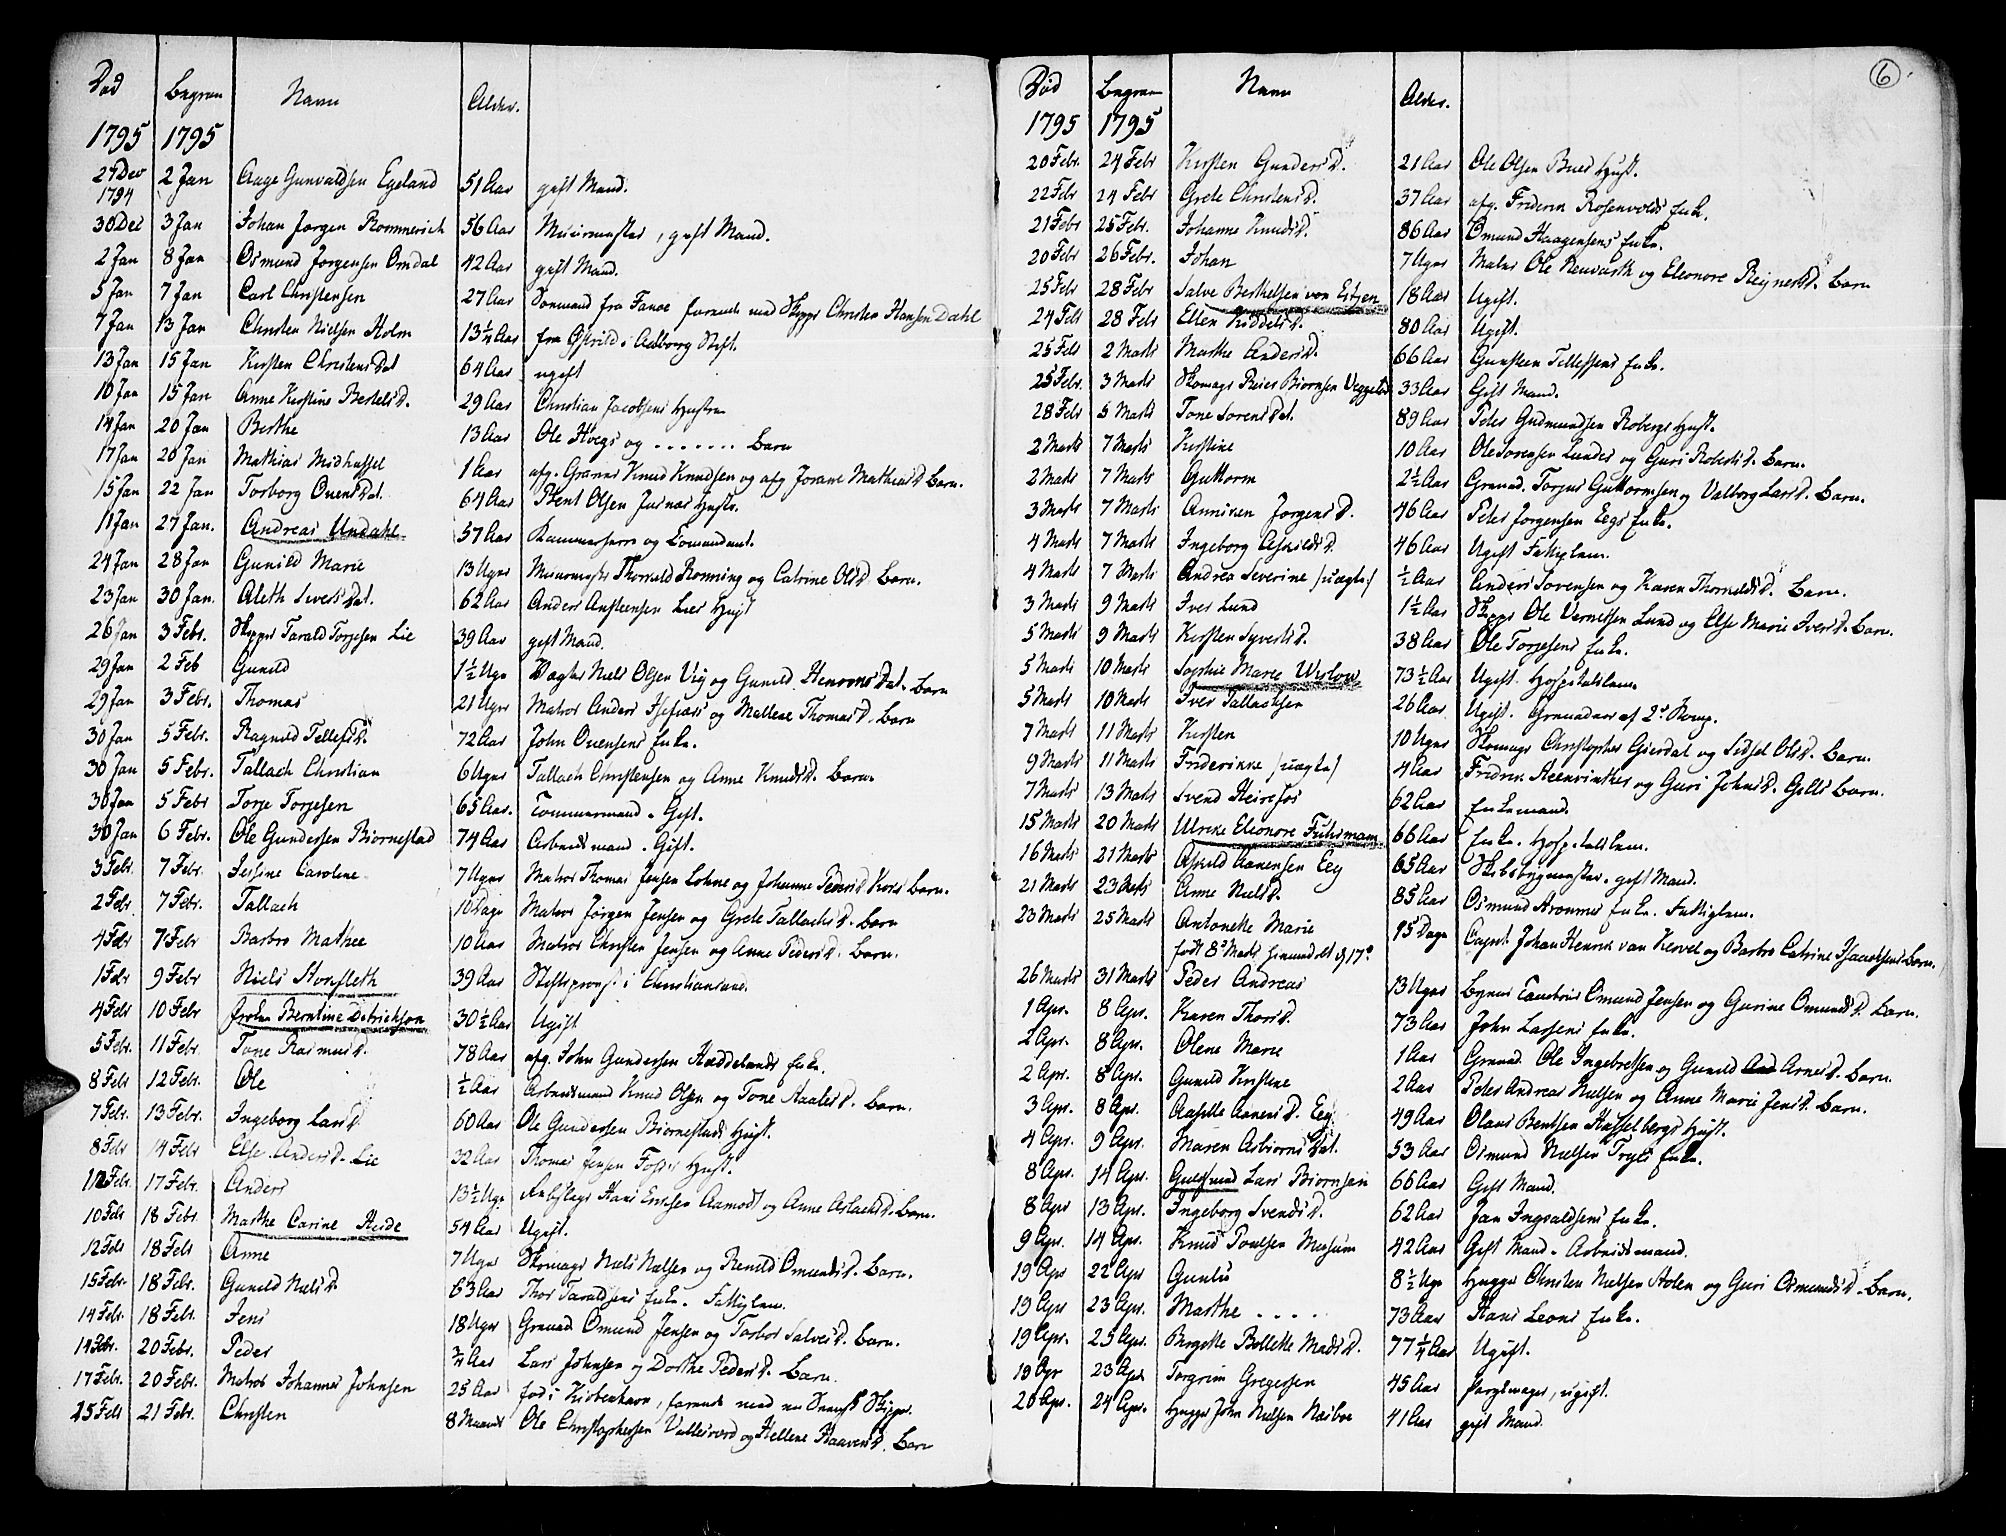 Død Begrav Navn Alder.
1795 1795
27 Dec 1794 2 Jan Aage Gunvaldsen Egeland 51 Aar gift Mand.
30 Dec 3 Jan Johan Jørgen Rommerich 56 Aar Muurmester, gift Mand.
2 Jan 8 Jan Osmund Jørgensen Omdal 42 Aar gift Mand.
5 Jan 7 Jan Carl Christensen 27 Aar Sømand fra Fanøe farende med Skipper Christen Hansen Dahl
7 Jan 13 Jan Christen Nielsen Holm 13½ Aar fra Østrild i Aalborg Stift.
13 Jan 15 Jan Kirsten Christens Dat 64 Aar ugift
10 Jan 15 Jan Anne Kirstine Bertels D. 29 Aar Christian Jacobsens Hustrue
14 Jan 20 Jan Berthe 13 Aar Ole Hvegs og . . . . . . . Barn
17 Jan 20 Jan Mathias Midhassel 1 Aar afg. Knud Knudsen og afg Jorane Mathias D. Barn.
15 Jan 22 Jan Torborg Ouens Dat. 64 Aar Bent Olsen Hustr.
11 Jan 27 Jan. Andreas Undahl 57 Aar Kammerherre og Comandant.
24 Jan 28 Jan Gunild Marie 13 Uger Muurmester Thorruld Rønning og Catrine Ols D. Barn.
23 Jan 30 Jan. Aleth Sivers Dat. 62 Aar Anders Ansteensen Lies Hust
26 Jan 3 Febr. Skipper Tarald Torjesen Lie 39 Aar gift Mand.
29 Jan 2 Feb Gunild 1½ Uge Niels Olsen Vig og Gunild Dat. Barn
29 Jan 3 Febr. Thomas 21 Uger Matros Anders og Mallene Thomas D. Barn
30 Jan 5 Febr. Ragnild Tellefs D. 72 Aar John Ouensens Enke.
30 Jan 5 Febr. Tallach Christian 6 Uger Tallach Christensen og Anne Knuds D. Barn
30 Jan 5 Febr Torje Torjesen 65 Aar. Tømmermand. Gift.
30 Jan 6 Febr. Ole Gundersen Biørnestad 74 Aar Arbeidsmand. Gift.
3 Febr. 7 Febr. Jessine Caroline 7 Uger Matros Thomas Jensen Lohne og Johanne Peders D. Barn.
2 Febr 7 Febr. Tallach 10 Dage Matros Jørgen Jensen og Grete Tallachs D. Barn
4 Febr 7 Febr Barbro Mathea 10 Aar Matros Christen Jensen og Anne Peders D. Barn.
1 Febr 9 Febr Niels Stockfleth 39 Aar Stiftsprovst i Christiansand.
4 Febr 10 Febr frøken Berntine Ditrickson 30½ Aar Ugift
5 Febr. 11 Febr. Tone Rasmus D. 78 Aar afg. John Gundersen Haddelands Enke.
8 Febr 12 Febr. Ole ½ Aar Arbeidsmand Knud Olsen og Tone Aanes D. Barn.
7 Febr. 13 Febr. Ingeborg Lars D. 60 Aar Ole Gundersen Biørnestads Hust.
8 Febr 14 Febr Else Anders D. Lie 32 Aar Thomas Jensen Hust.
12 Febr. 17 Febr. Anders 13½ Uge Hans Ericsen Aamodt og Anne Aslachs D. Barn.
10 Febr 18 Febr. Marthe Carine Heide 54 Aar Ugift.
12 Febr 18 Febr Anne 7 Uger Skomager Niels Nielsen og Renild Omunds D. Barn.
15 Febr. 18 Febr. Gunild Niels D 63 Aar Thor Taraldsens Enke. Fattiglem.
14 Febr. 18 Febr. Jens 18 Uger Grenad Omund Jensen og Torbor Salves D. Barn.
14 Febr. 20 Febr. Peder ¾ Aar Lars Johnsen og Dorthe Peders D. Barn
17 Febr. 20 Febr. Matros Johannes Johnsen 25 Aar født i Kiøbenhavn, farende med en Dansk Skipper.
15 Febr 21 Febr. Christen 8 Maaneder Ole Christophersen Vallesværd og Hellene Raavens D. Barn
6
Død Begrav Navn Alder.
1795 1795
20 Febr. 24 Febr Kirsten Gunders D. 21 Aar Ole Olsen Bues Hust.
22 Febr 24 Febr Grete Christens D. 37 Aar afg. Friderik Rosenvolds Enke.
21 Febr 25 Febr. Johanne Knuds D. 86 Aar Omund Haagensens Enke.
20 Febr 26 Febr. Johan 7 Uger Maler Ole Neuvarth og Eleonore Reijners D. Barn
25 Febr 28 Febr Salve Berthelsen von Eitzen 18 Aar Ugift.
24 Febr 28 Febr Ellen Kiddels D. 80 Aar Ugift.
25 Febr 2 Marts Marthe Anders D. 66 Aar Gunsteen Tellefsens Enke.
25 Febr. 3 Marts Skomager Reier Biørnsen Veggeland 33 Aar Gift Mand.
28 Febr 5 Marts Tone Sørens Dat. 89 Aar Peter Gudmundsen Robergs Hust.
2 Marts 7 Marts Kirstine 10 Aar Ole Sørensen Lundes og Guri Roberts D. Barn.
2 Marts 7 Marts Guttorm 2½ Aar Grenad. Torjus Guttormsen og Valborg Lars D. Barn.
3 Marts 7 Marts Anniken Jørgens D. 46 Aar Peter Jørgensen Eegs Enke.
4 Marts 7 Marts Ingeborg Askilds D. 46 Aar Ugift Fattiglem.
4 Marts 7 Marts Andrea Severine /uægte/ ½ Aar Anders Sørensen og Karen Thorulds D. Barn.
3 Marts 9 Marts Iver Lund 1½ Aar Skipper Ole Lund og Else Marie Ivers D. Barn.
5 Marts 9 Marts Kirsten Syverts D. 38 Aar Ole Torjesens Enke.
5 Marts 10 Marts Sophie Marie Wisløw 73½ Aar Ugift Hospitalslem.
5 Marts 10 Marts Iver Tallachsen 26 Aar Ugift. Grenader af 2d Komp.
7 Marts 11 Marts Kirsten 10 Uger Skomager Christopher Gierdal og Sidsel Ols D. Barn.
9 Marts 11 Marts Friderikke /uægte/ 4 Aar Fridrik og Guri Johns D. Barn.
7 Marts 13 Marts Svend Reiersøs 62 Aar Enkemand.
15 Marts 20 Marts Ulrike Eleonore Fuhrmann 66 Aar Enke. Hospitalslem.
16 Marts 21 Marts Askild Aanensen Eeg 65 Aar Skibsbygmester. gift Mand.
21 Marts 23 Marts Anne Niels D. 85 Aar Osmund Enke. Fattiglem.
23 Marts 25 Marts Antonette Marie 15 Dage Capit. Johan Henrik van Kervel og Barbro Catrine Isaachsens Barn.
født 8d Marts hjemmedøbt d 17d
26 Marts 31 Marts Peder Andreas 13 Uger Omund Jensen og Gurine Omunds D. Barn.
1 Apr. 8 Apr. Karen Thors D. 73 Aar John Larsens Enke.
2 Apr. 8 Apr. Olene Marie 1 Aar Grenad Ole Ingebretsen og Gunild Arnes D. Barn.
2 Apr. 8 Apr. Gunild Kirstine 2 Aar Peter Andreas Nielsen og Anne Marie Jens D. Barn.
3 Apr. 8 Apr. Aaselle Aanens D. Eeg 49 Aar Olaus Bentsen Hasselbergs Hust.
4 Apr. 9 Apr. Maren Asbiørns Dat. 53 Aar Osmund Nielsen Enke.
8 Apr. 14 Apr. Guldsmed Lars Biørnsen 66 Aar Gift Mand.
8 Apr 13 Apr. Ingeborg Svends D. 62 Aar Jan Ingvaldsens Enke.
9 Apr. 14 Apr. Knud Povelsen Mosum 42 Aar Gift Mand. Arbeidsmand.
19 Apr 22 Apr Gunlu 8½ Uge Hugger Christen Nielsen Holen og Guri Osmunds D. Barn.
19 Apr 23 Apr. Marthe . . . . 73 Aar Hans Leons Enke.
19 Apr. 25 Apr. Birgitte Bollette Mads D. 77¼ Aar Ugift.
19 Apr 23 Apr. Torgrim Gregersen 45 Aar , ugift.
20 Apr. 24 Apr. Hugger John Nielsen Næsboe 41 Aar gift Mand